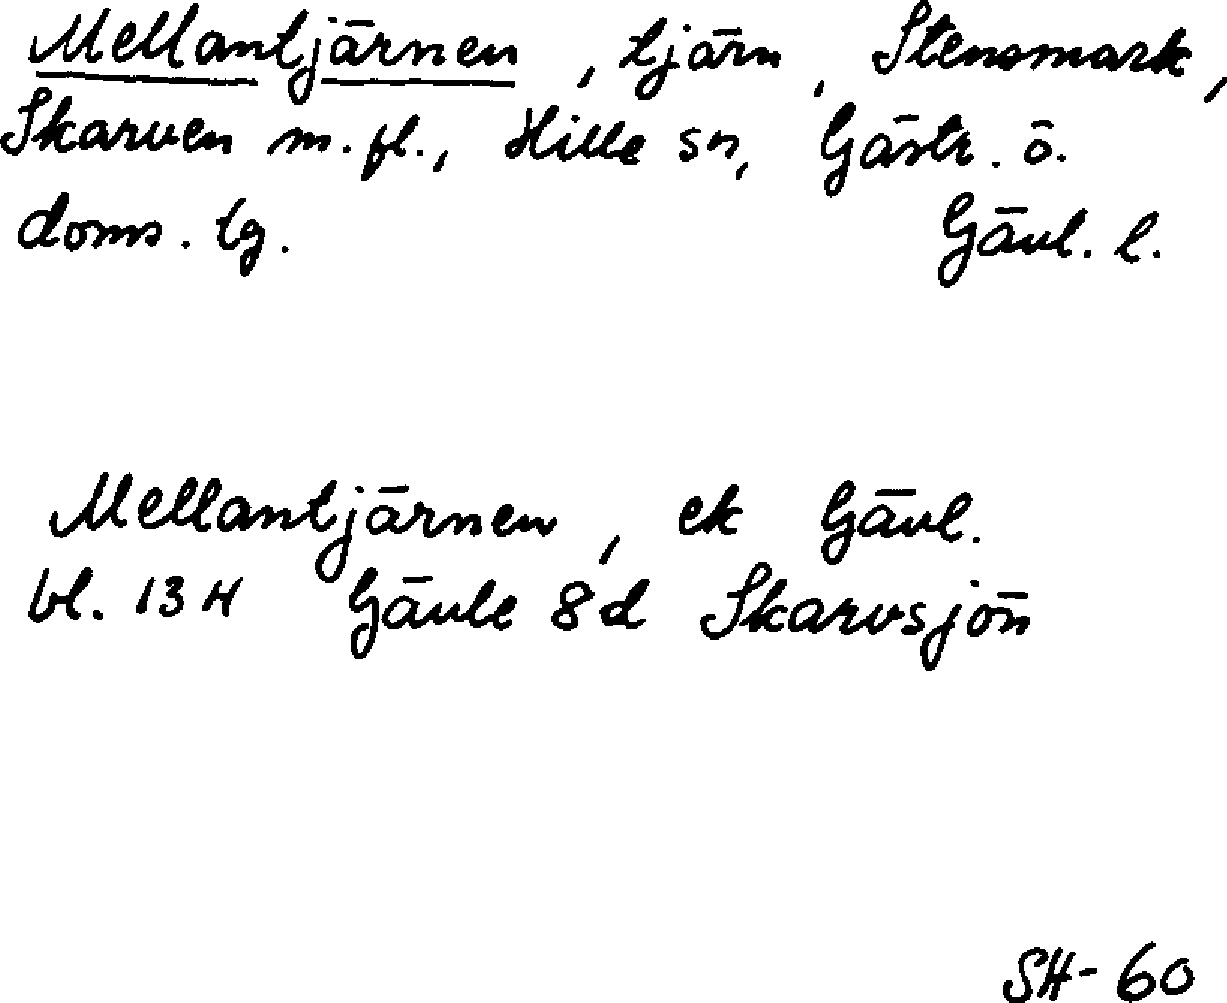 Mellantjärnen, tjärn, Stensmark,
Skarven m.fl., Hille sn, Gästr. ö.
doms. lg. Gävl. l.
Mellantjärnen, ek Gävl.
bl. 13 H Gävle 8d Skarvsjön
SH-60